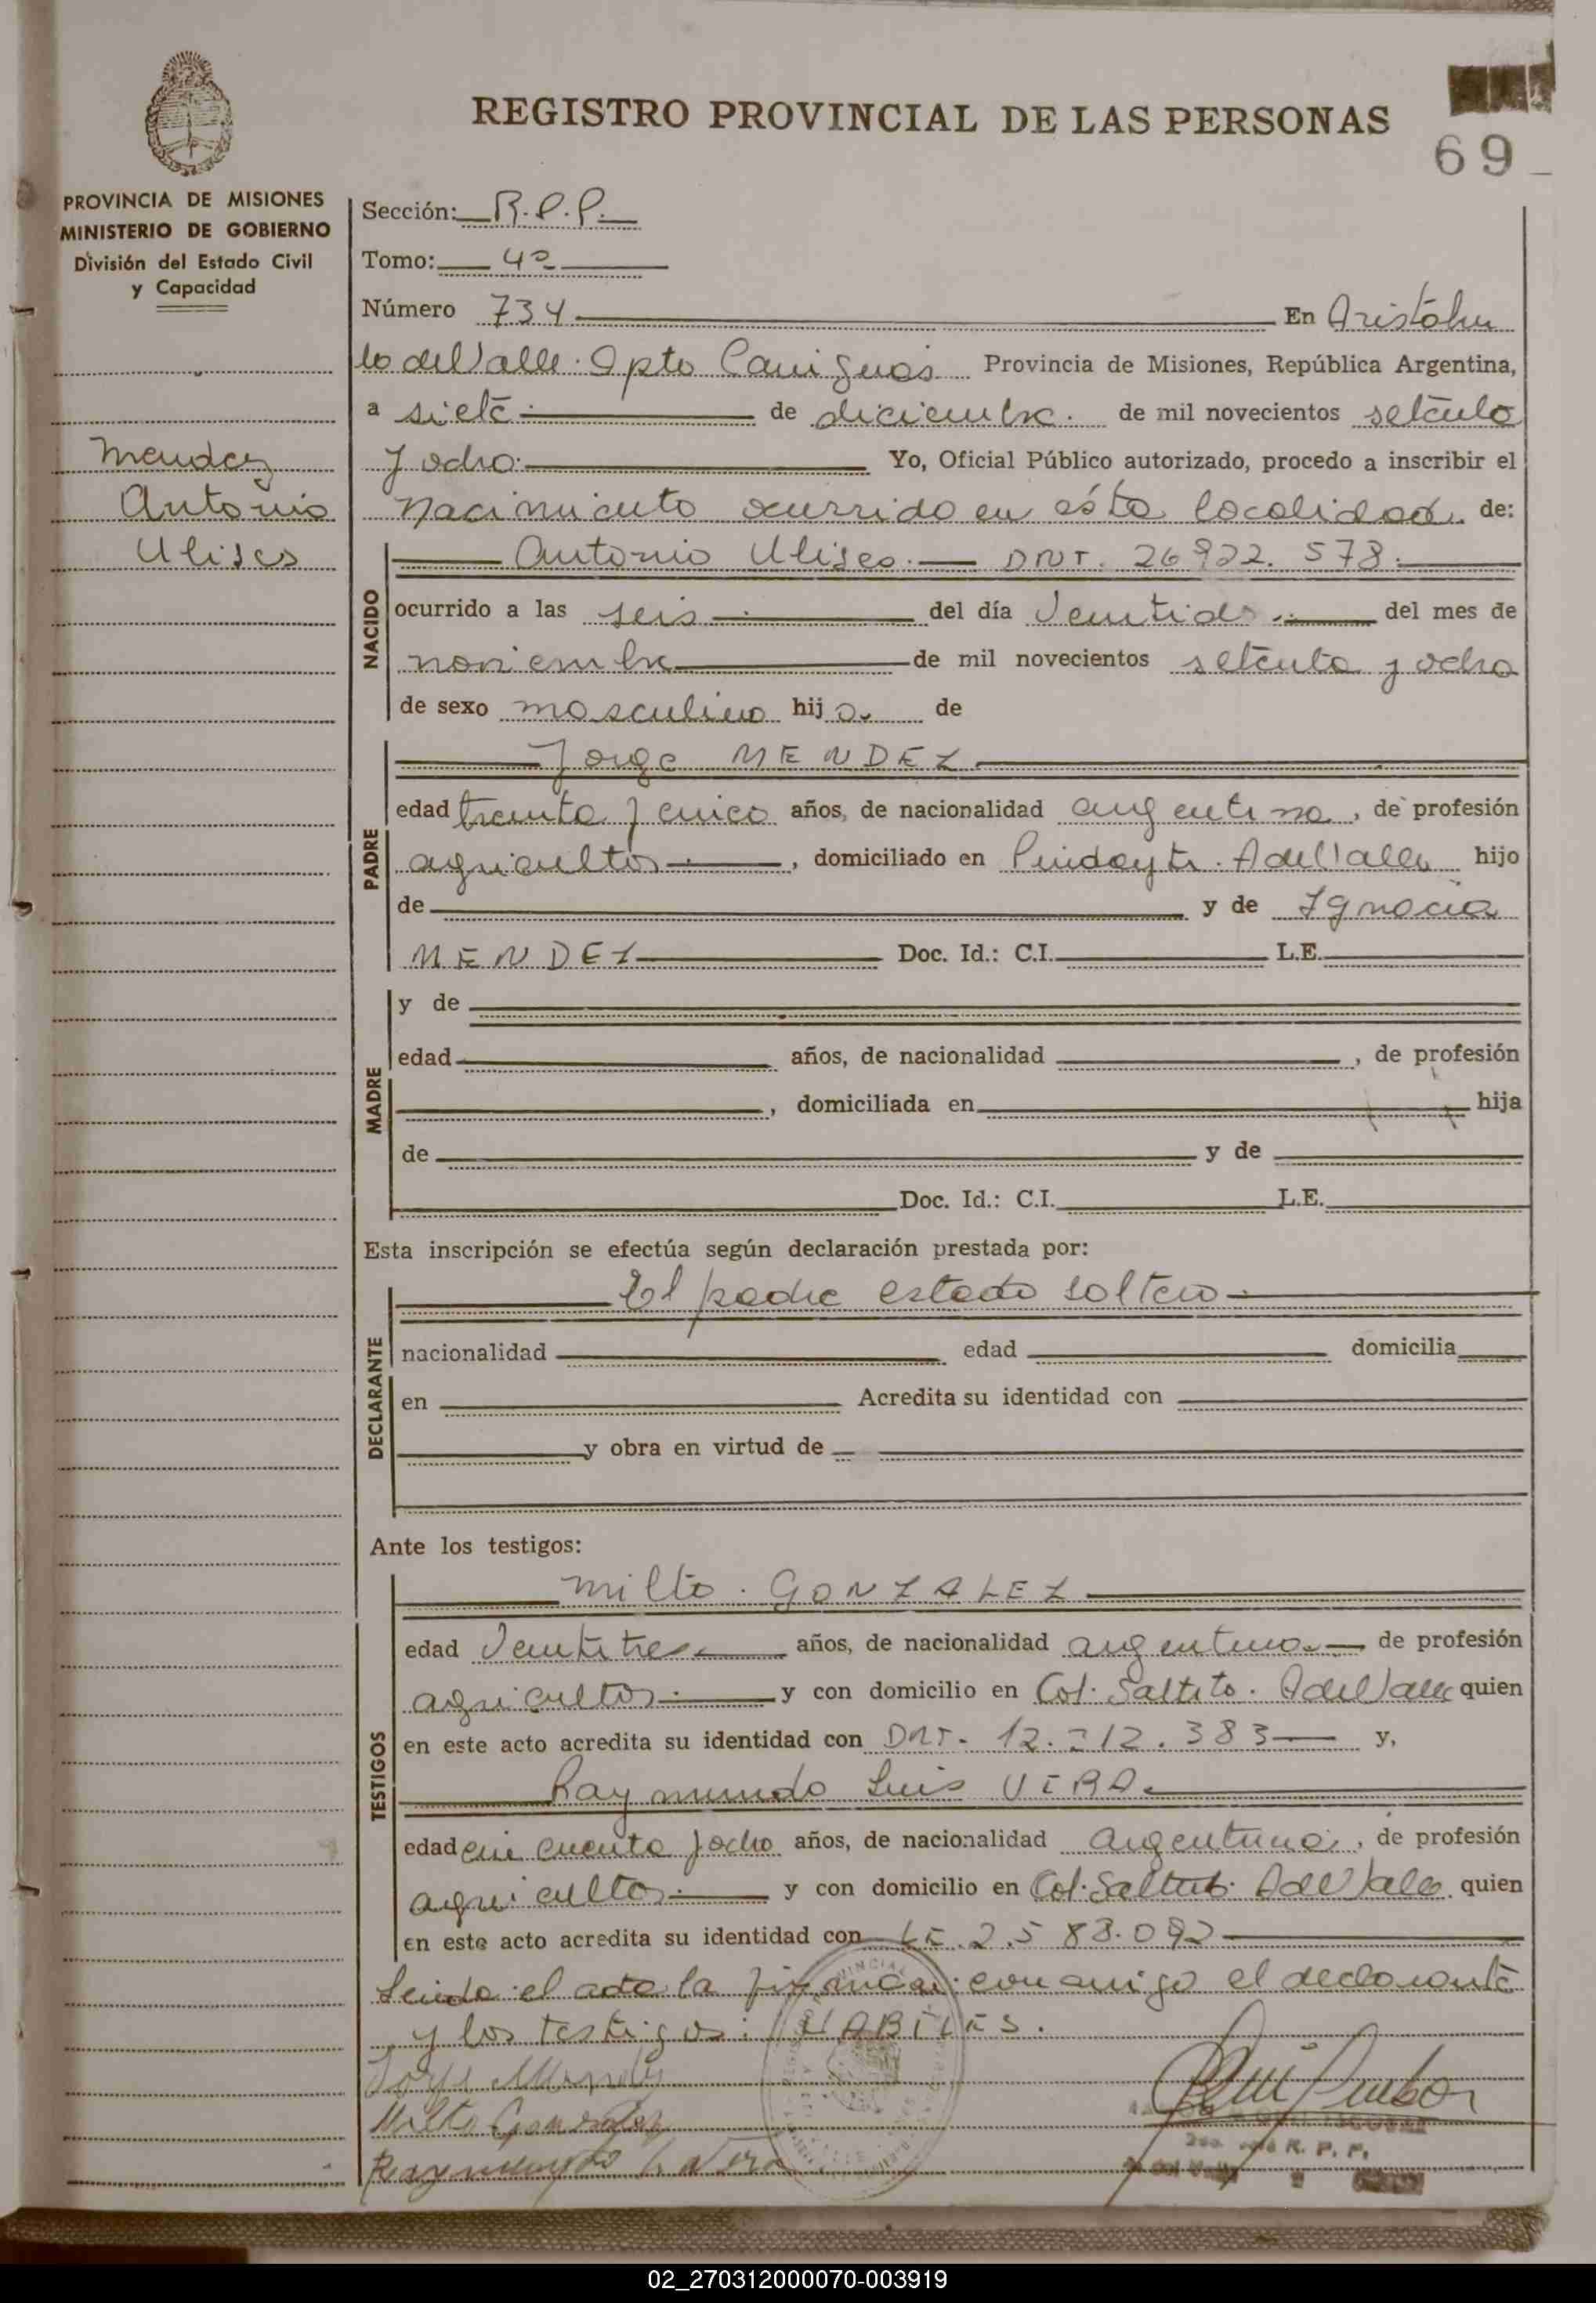 REGISTRO PROVINCIAL DE LAS PERSONAS
69
PROVINCIA DE MISIONES
MINISTERIO DE GOBIERNO
División del Estado Civil
y Capacidad
Mendez
Antonio
Ulises
Sección: R.P.P.
Tomo: 4º
Número 734 En Aristóbu
lo del Valle. Dpto Cainguas Provincia de Misiones, República Argentina,
a siete de diciembre. de mil novecientos setenta
y ocho. Yo, Oficial Público autorizado, procedo a inscribir el
Nacimiento ocurrido en ésta localidad. de:
NACIDO
Antonio Ulises. DNI. 26922.578.
ocurrido a las seis del día Ventidos del mes de
noviembre de mil novecientos setenta y ocho
de sexo masculino hijo. de
PADRE
Jorge MENDEZ
edad treinta y cinco años, de nacionalidad argentina, de profesión
agricultor , domiciliado en Pindayti. A del Valle hijo
de y de Ignacia
MENDEZ Doc. Id.: C.I. L.E.
MADRE
y de
edad años, de nacionalidad , de profesión
, domiciliada en hija
de y de
Doc. Id.: C.I. L.E.
Esta inscripción se efectúa según declaración prestada por:
DECLARANTE
El padre estado soltero
nacionalidad edad domicilia
en Acredita su identidad con
y obra en virtud de
Ante los testigos:
TESTIGOS
Milto. GONZALEZ
edad Ventitres años, de nacionalidad argentina. de profesión
agricultor. y con domicilio en Col. Saltito. A del Valle quien
en este acto acredita su identidad con DNI. y,
Raymundo Luis VERA.
edad cincuenta y ocho años, de nacionalidad argentina, de profesión
agricultor. y con domicilio en Col. Saltito. A del Valle. quien
en este acto acredita su identidad con LE.2.583.092
Leida el acta la firman conmigo el declarante
y los testigos: HABILES.
Jorge Mendez
Milto Gonzalez
Raymundo L Vera
R. P. P.
02_270312000070-003919